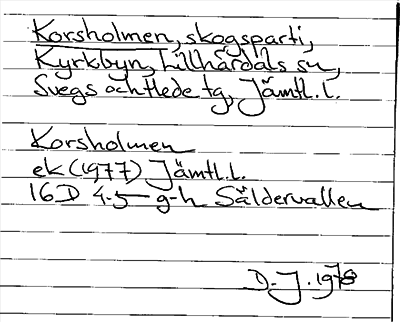 Korsholmen, skogsparti,
Kyrkbyn, Lillhärdals sn,
Svegs och Hede tg, Jämtl. l.
Korsholmen
ek (1977) Jämtl. l.
16D 4-5 g-h Säldervallen
D. J. 1978